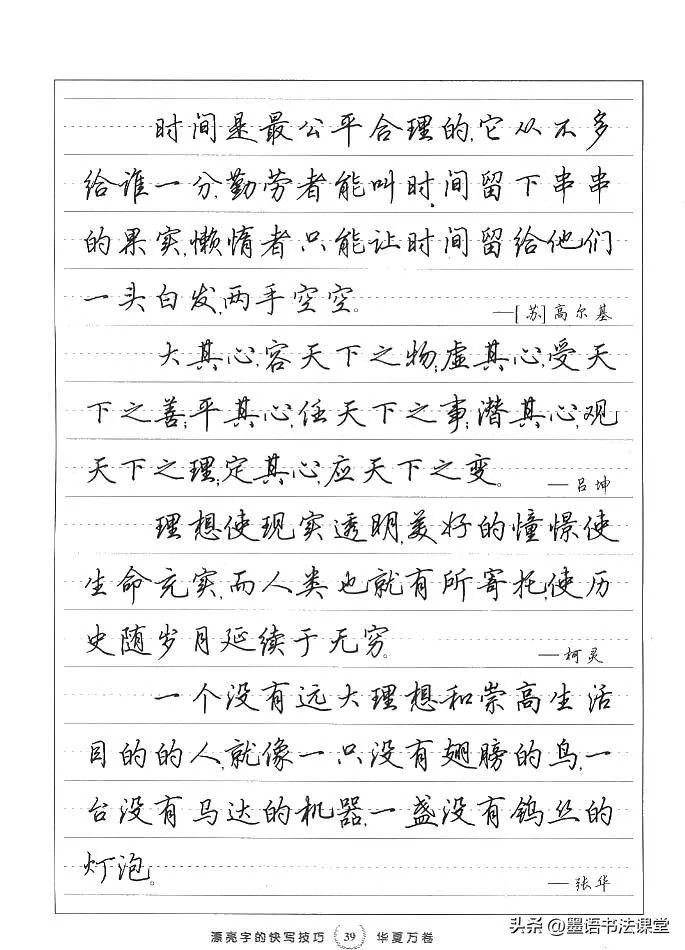 时间是最公平合理的,它从不多
给谁一分,勤劳者能叫时间留下串串
的果实,懒惰者只能让时间留给他们
一头白发,两手空空。
—[苏]高尔基
大其心,容天下之物;虚其心,受天
下之善;平其心,任天下之事;潜其心,观
天下之理;定其心,应天下之变。
—吕坤
理想使现实透明,美好的憧憬使
生命充实,而人类也就有所寄托,使历
史随岁月延续于无穷。
—柯灵
一个没有远大理想和崇高生活
目的的人,就像一只没有翅膀的鸟,一
台没有马达的机器,一盏没有钨丝的
灯泡。
—张华
漂亮字的快写技巧 39 华夏万卷
头条@墨语书法课堂